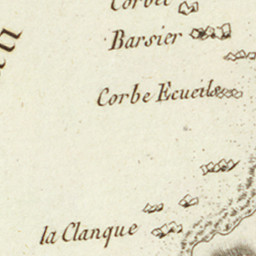 Corbel
Barsier
Corbe Ecueils
la Clanque